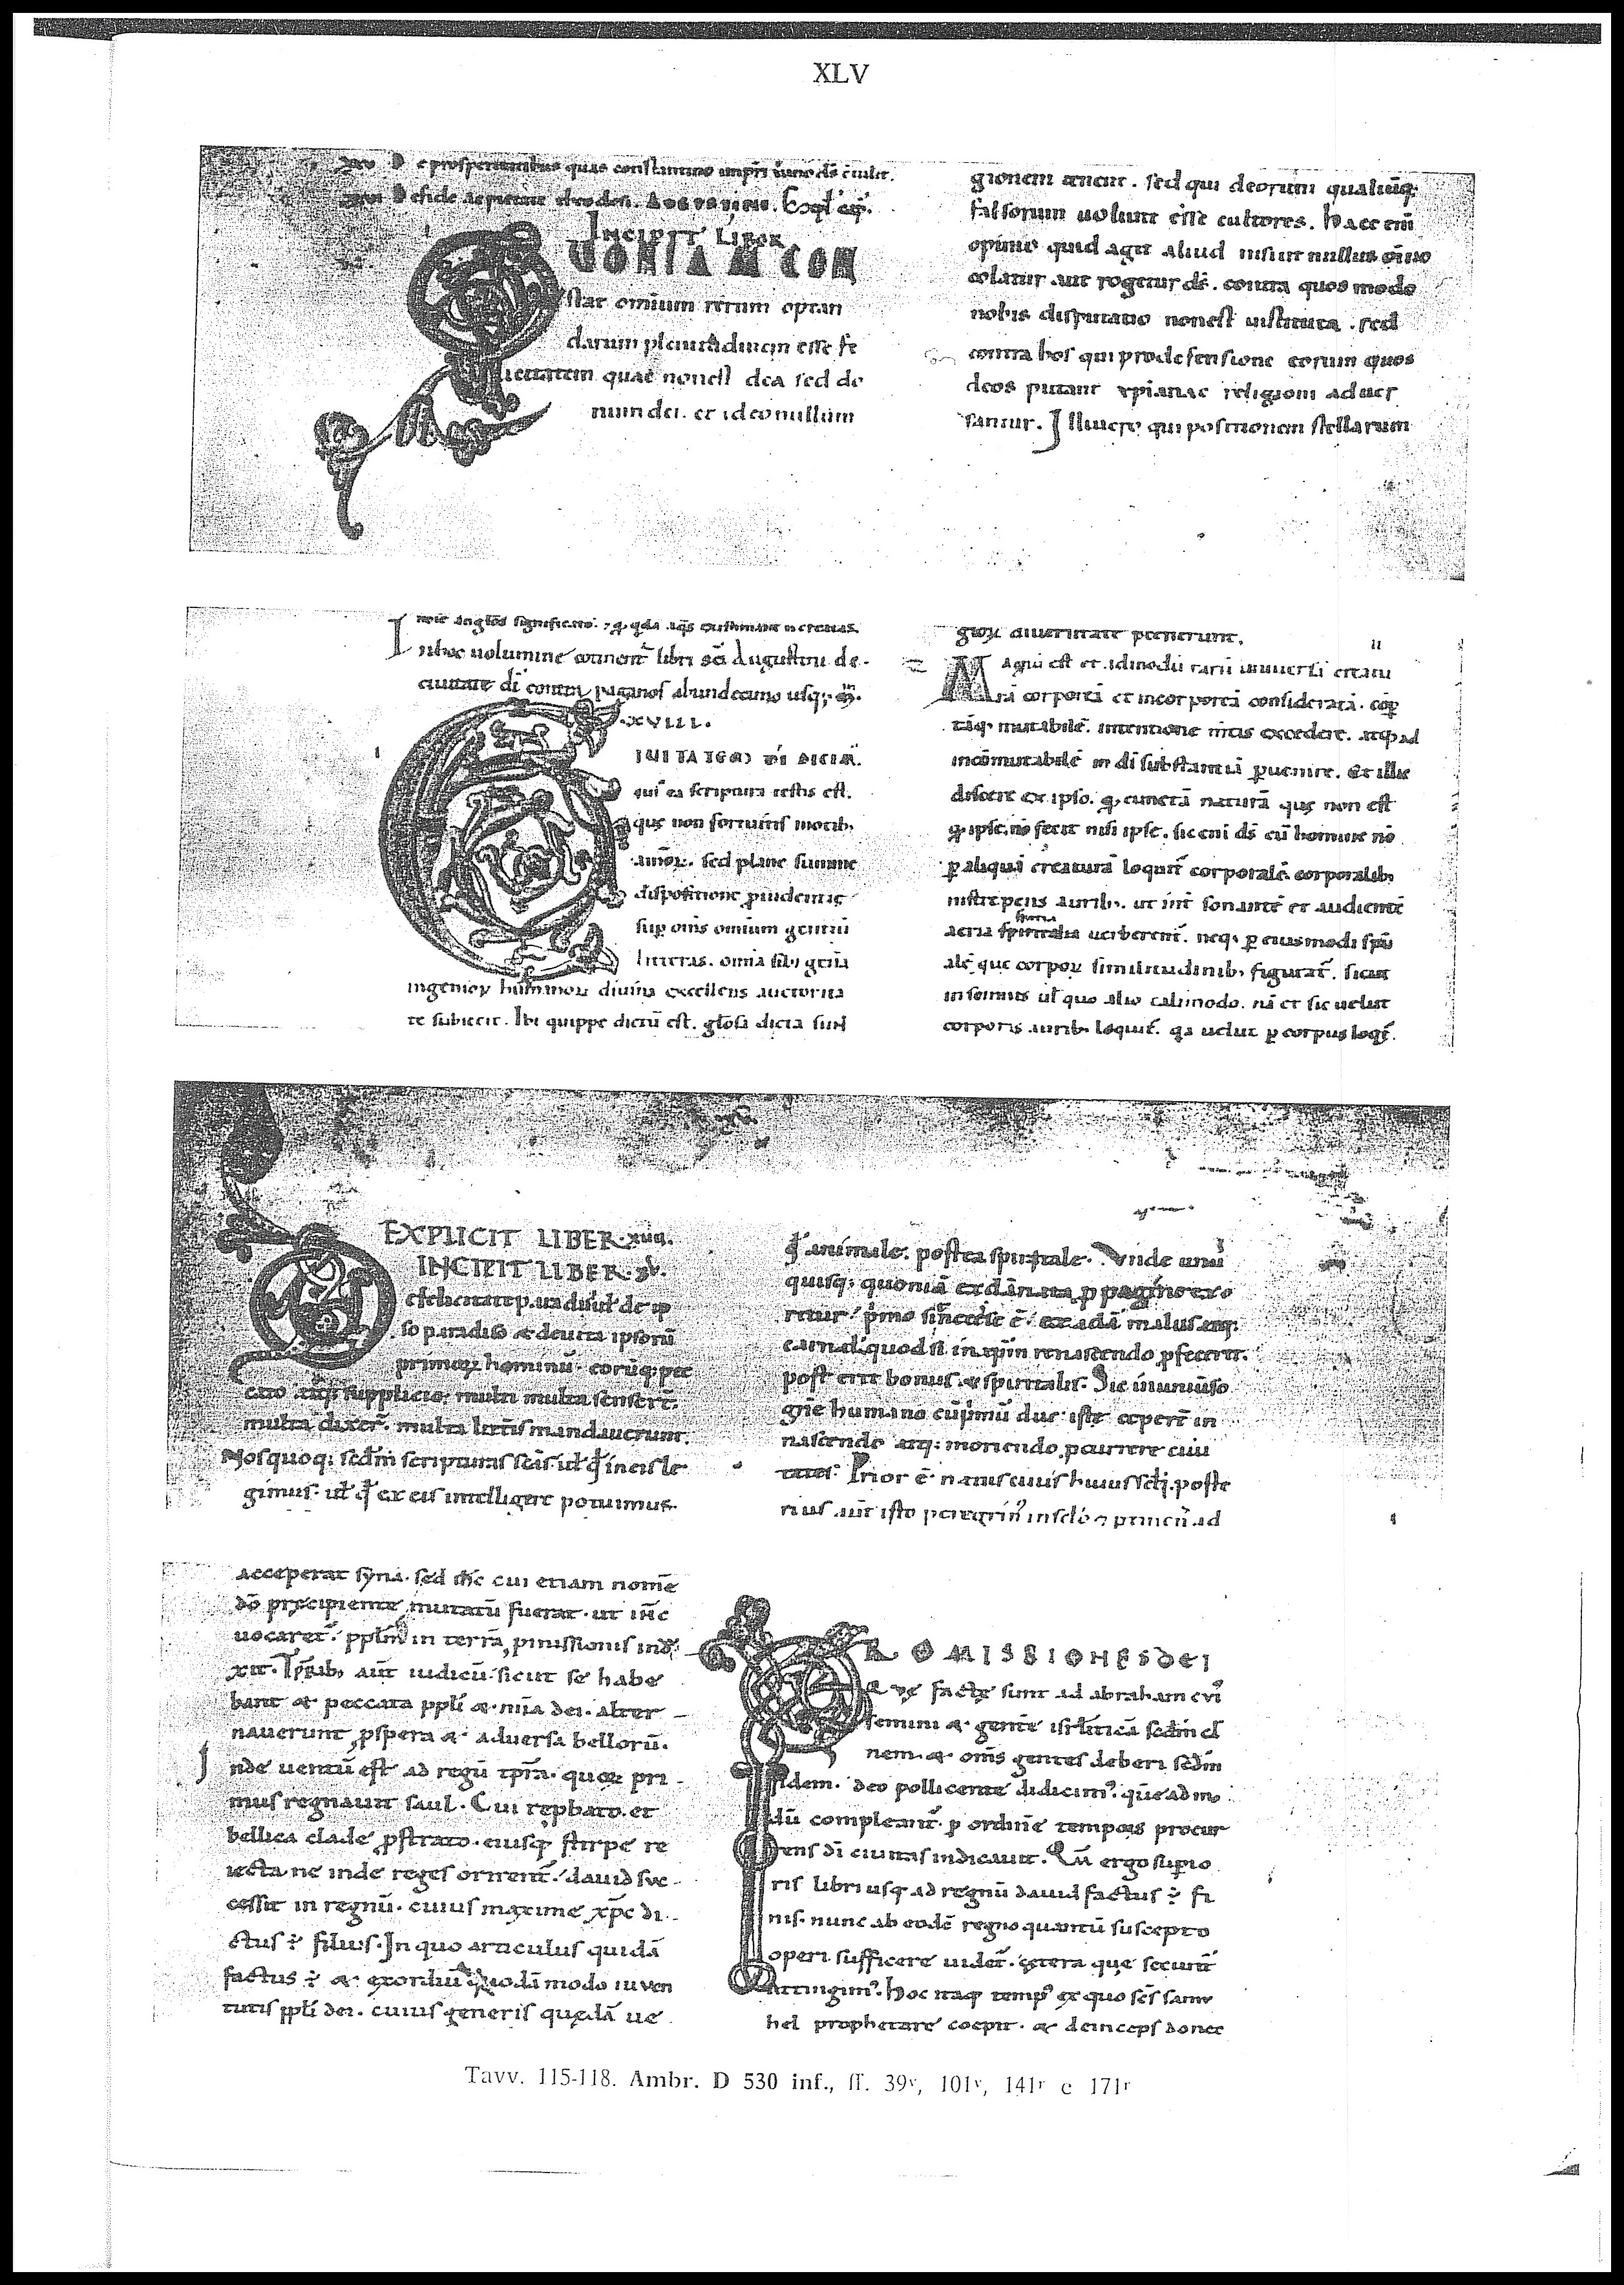 XLV
xxv De prosperitatibus quas constantino impri
xxvi De fide ac pietate theodosi. AUGUSTINI. Expl cap.
INCIPIT LIBER
QUONIAM CON
stat omium rerum optan
darum plenitudinem esse fe
licitatem quae nonest dea sed do
num dei. et ideo nullum
gionem tenent. sed qui deorum qualiūq;
falsorum uolunt esse cultores. haec eni
opinio quid agit aliud nisi ut nullus oīno
colatur aut rogetur ds. contra quos modo
nobis disputatio nonest instituta. sed
contra hos qui pro defensione eorum quos
deos putant xpianae religioni aduer
santur. Illi uero qui positionem stellarum
In hoc uolumine continent libri sci Augustini de
ciuitate di contra paganos ab undecimo usq; in
.XVIII.
CIUITATEM DI DICIM
cui ea scriptura testis est.
que non fortuitis motib;
sed plane summe
dispositione prudentie
sup omis omium gentiu
litteras. omia sibi genera
ingenior humanor diuina excellens auctorita
te subiecit. Ibi quippe dictū est. glosa dicta sunt
gior diuersitate pcenerunt.
Magnū est et admodū rarū uniuersā creatu
rā corporeā et incorporeā consideratā. cōp
tāq; mutabilē. intentione mtis excedere. atq; ad
incōmutabilē di substantiā puenire. Et illic
discere ex ipso. qd cunctā naturā que non est
qd ipse. nō fecit nisi ipse. sic eni ds cū homine nō
p aliquā creaturā loquit corporalē. corporalib;
instrepens aurib;. ut int sonantē et audientē
aeria spiritalia uerberent. neq; p eiusmodi spū
alē que corpor similitudinib; figurat. sicut
in somnis ul quo alio tali modo. nā et sic uelut
corporis aurib; loquit. qa uelut p corpus loqt.
EXPLICIT LIBER xiiij.
INCIPIT LIBER xv.
De felicitate paradisi ul de ip
so paradiso & de uita ipsorū
primor hominū eorūq; pec
cato atq; supplicio. multi multa senser.
multa dixer. multa litteris mandauerunt.
Nos quoq; scdm scripturas scas ul qd in eis le
gimus. ul qd ex eis intelligere potuimus.
qd animale. postea spiritale. Unde unu
quisq; quoniā ex dānata ppagine exo
ritur. pmo sit necesse ē ex adā malus atq;
carnalis. quodsi in xpm renascendo pfecerit.
post erit bonus & spiritalis. Sic in uniuso
gne humano cū pmū due iste ceper in
nascendo atq; moriendo pcurrere ciui
tates. Prior ē natus ciuis huius scli. poste
rius aūt isto peregrin in sclo & ptinens ad
acceperat syna. sed ihc cui etiam nomē
dō precipiente mutatū fuerat. ut ihc
uocaret. pplm in terrā pmissionis indu
xit. Tprib; aūt iudicū sicut se habe
bant & peccata ppli & mīa dei. alter
nauerunt pspera & aduersa bellorū.
Inde uentū est ad regū tpra. quor pri
mus regnauit saul. Cui repbato et
bellica clade pstrato. eiusq; stirpe re
iecta ne inde reges orirent. dauid suc
cessit in regnū. cuius maxime xpc di
ctus ē filius. In quo articulus quidā
factus ē & exordiū quodā modo iuuen
tutis ppli dei. cuius generis quedā ue
PROMISSIONES DEI
Que facte sunt ad abraham cui
semini & gentē isrliticā scdm car
nem. & omis gentes deberi scdm
fidem. deo pollicente didicim. quē ad mo
dū compleant. p ordinē temporis procur
rens di ciuitas indicauit. Qm ergo supio
ris libri usq; ad regnū dauid factus ē fi
nis. nunc ab eodē regno quantū suscepto
operi sufficere uidet. cetera que secunt
attingim. Hoc itaq; temp ex quo scs samu
hel prophetare coepit. & deinceps donec
Tavv. 115-118. Ambr. D 530 inf., ff. 39v, 101v, 141r e 171r